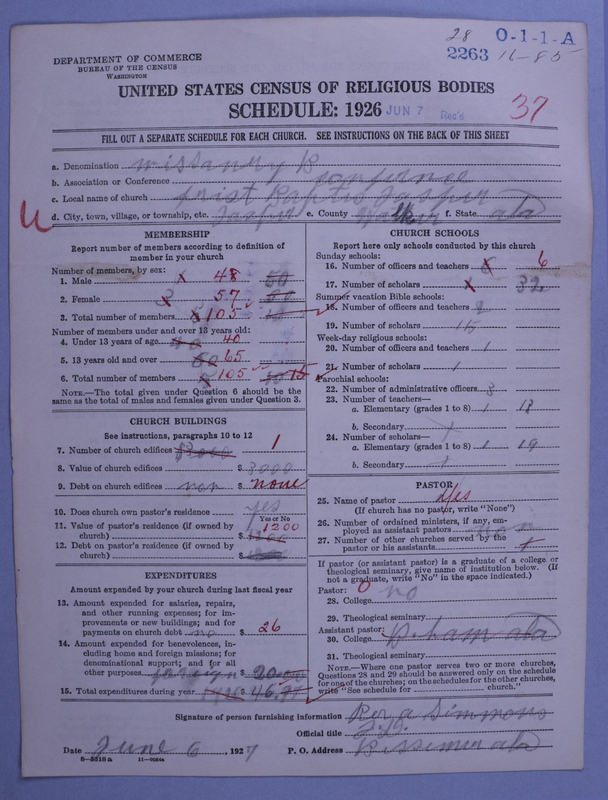 28 O-1-1-A
DEPARTMENT OF COMMERCE
BUREAU OF THE CENSUS
WASHINGTON
2263 16-85
UNITED STATES CENSUS OF RELIGIOUS BODIES
SCHEDULE: 1926 JUN 7 Rec'd 37
FILL OUT A SEPARATE SCHEDULE FOR EACH CHURCH. SEE INSTRUCTIONS ON THE BACK OF THIS SHEET
a. Denomination
b. Association or Conference
c. Local name of church Jasper
d. City, town, village, or township, etc. Jasper e. County Walker f. State ala
MEMBERSHIP
Report number of members according to definition of member in your church
Number of members, by sex:
1. Male x 48 50
2. Female x 57 60
3. Total number of members x 105
Number of members under and over 13 years old:
4. Under 13 years of age 40
5. 13 years old and over 60 65
6. Total number of members 105
NOTE.—The total given under Question 6 should be the same as the total of males and females given under Question 3.
CHURCH BUILDINGS
See instructions, paragraphs 10 to 12
7. Number of church edifices 1
8. Value of church edifices $ 3000
9. Debt on church edifices non $ none
10. Does church own pastor's residence yes
Yes or No
11. Value of pastor's residence (if owned by church) $ 1200
12. Debt on pastor's residence (if owned by church) $
EXPENDITURES
Amount expended by your church during last fiscal year
13. Amount expended for salaries, repairs, and other running expenses; for improvements or new buildings; and for payments on church debt no $ 26
14. Amount expended for benevolences, including home and foreign missions; for denominational support; and for all other purposes foreign $ 20.00
15. Total expenditures during year $ 46.
CHURCH SCHOOLS
Report here only schools conducted by this church
Sunday schools:
16. Number of officers and teachers x 6
17. Number of scholars x 32
Summer vacation Bible schools:
18. Number of officers and teachers
19. Number of scholars 15
Week-day religious schools:
20. Number of officers and teachers 1
21. Number of scholars 1
Parochial schools:
22. Number of administrative officers 3
23. Number of teachers—
a. Elementary (grades 1 to 8) 1 18
b. Secondary
24. Number of scholars—
a. Elementary (grades 1 to 8) 1 19
b. Secondary
PASTOR
25. Name of pastor Yes
(If church has no pastor, write "None")
26. Number of ordained ministers, if any, employed as assistant pastors
27. Number of other churches served by the pastor or his assistants
If pastor (or assistant pastor) is a graduate of a college or theological seminary, give name of institution below. (If not a graduate, write "No" in the space indicated.)
Pastor: 0 no
28. College
29. Theological seminary
Assistant pastor:
30. College B.ham ala
31. Theological seminary
NOTE.—Where one pastor serves two or more churches, Questions 28 and 29 should be answered only on the schedule for one of the churches; on the schedules for the other churches, write "See schedule for church."
Signature of person furnishing information Simmons
Official title
Date June 6, 1927 P. O. Address Bessimer ala
8—5518a 11—9084a